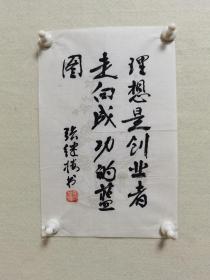 理想是创业者
走向成功的蓝
图
张继梅书